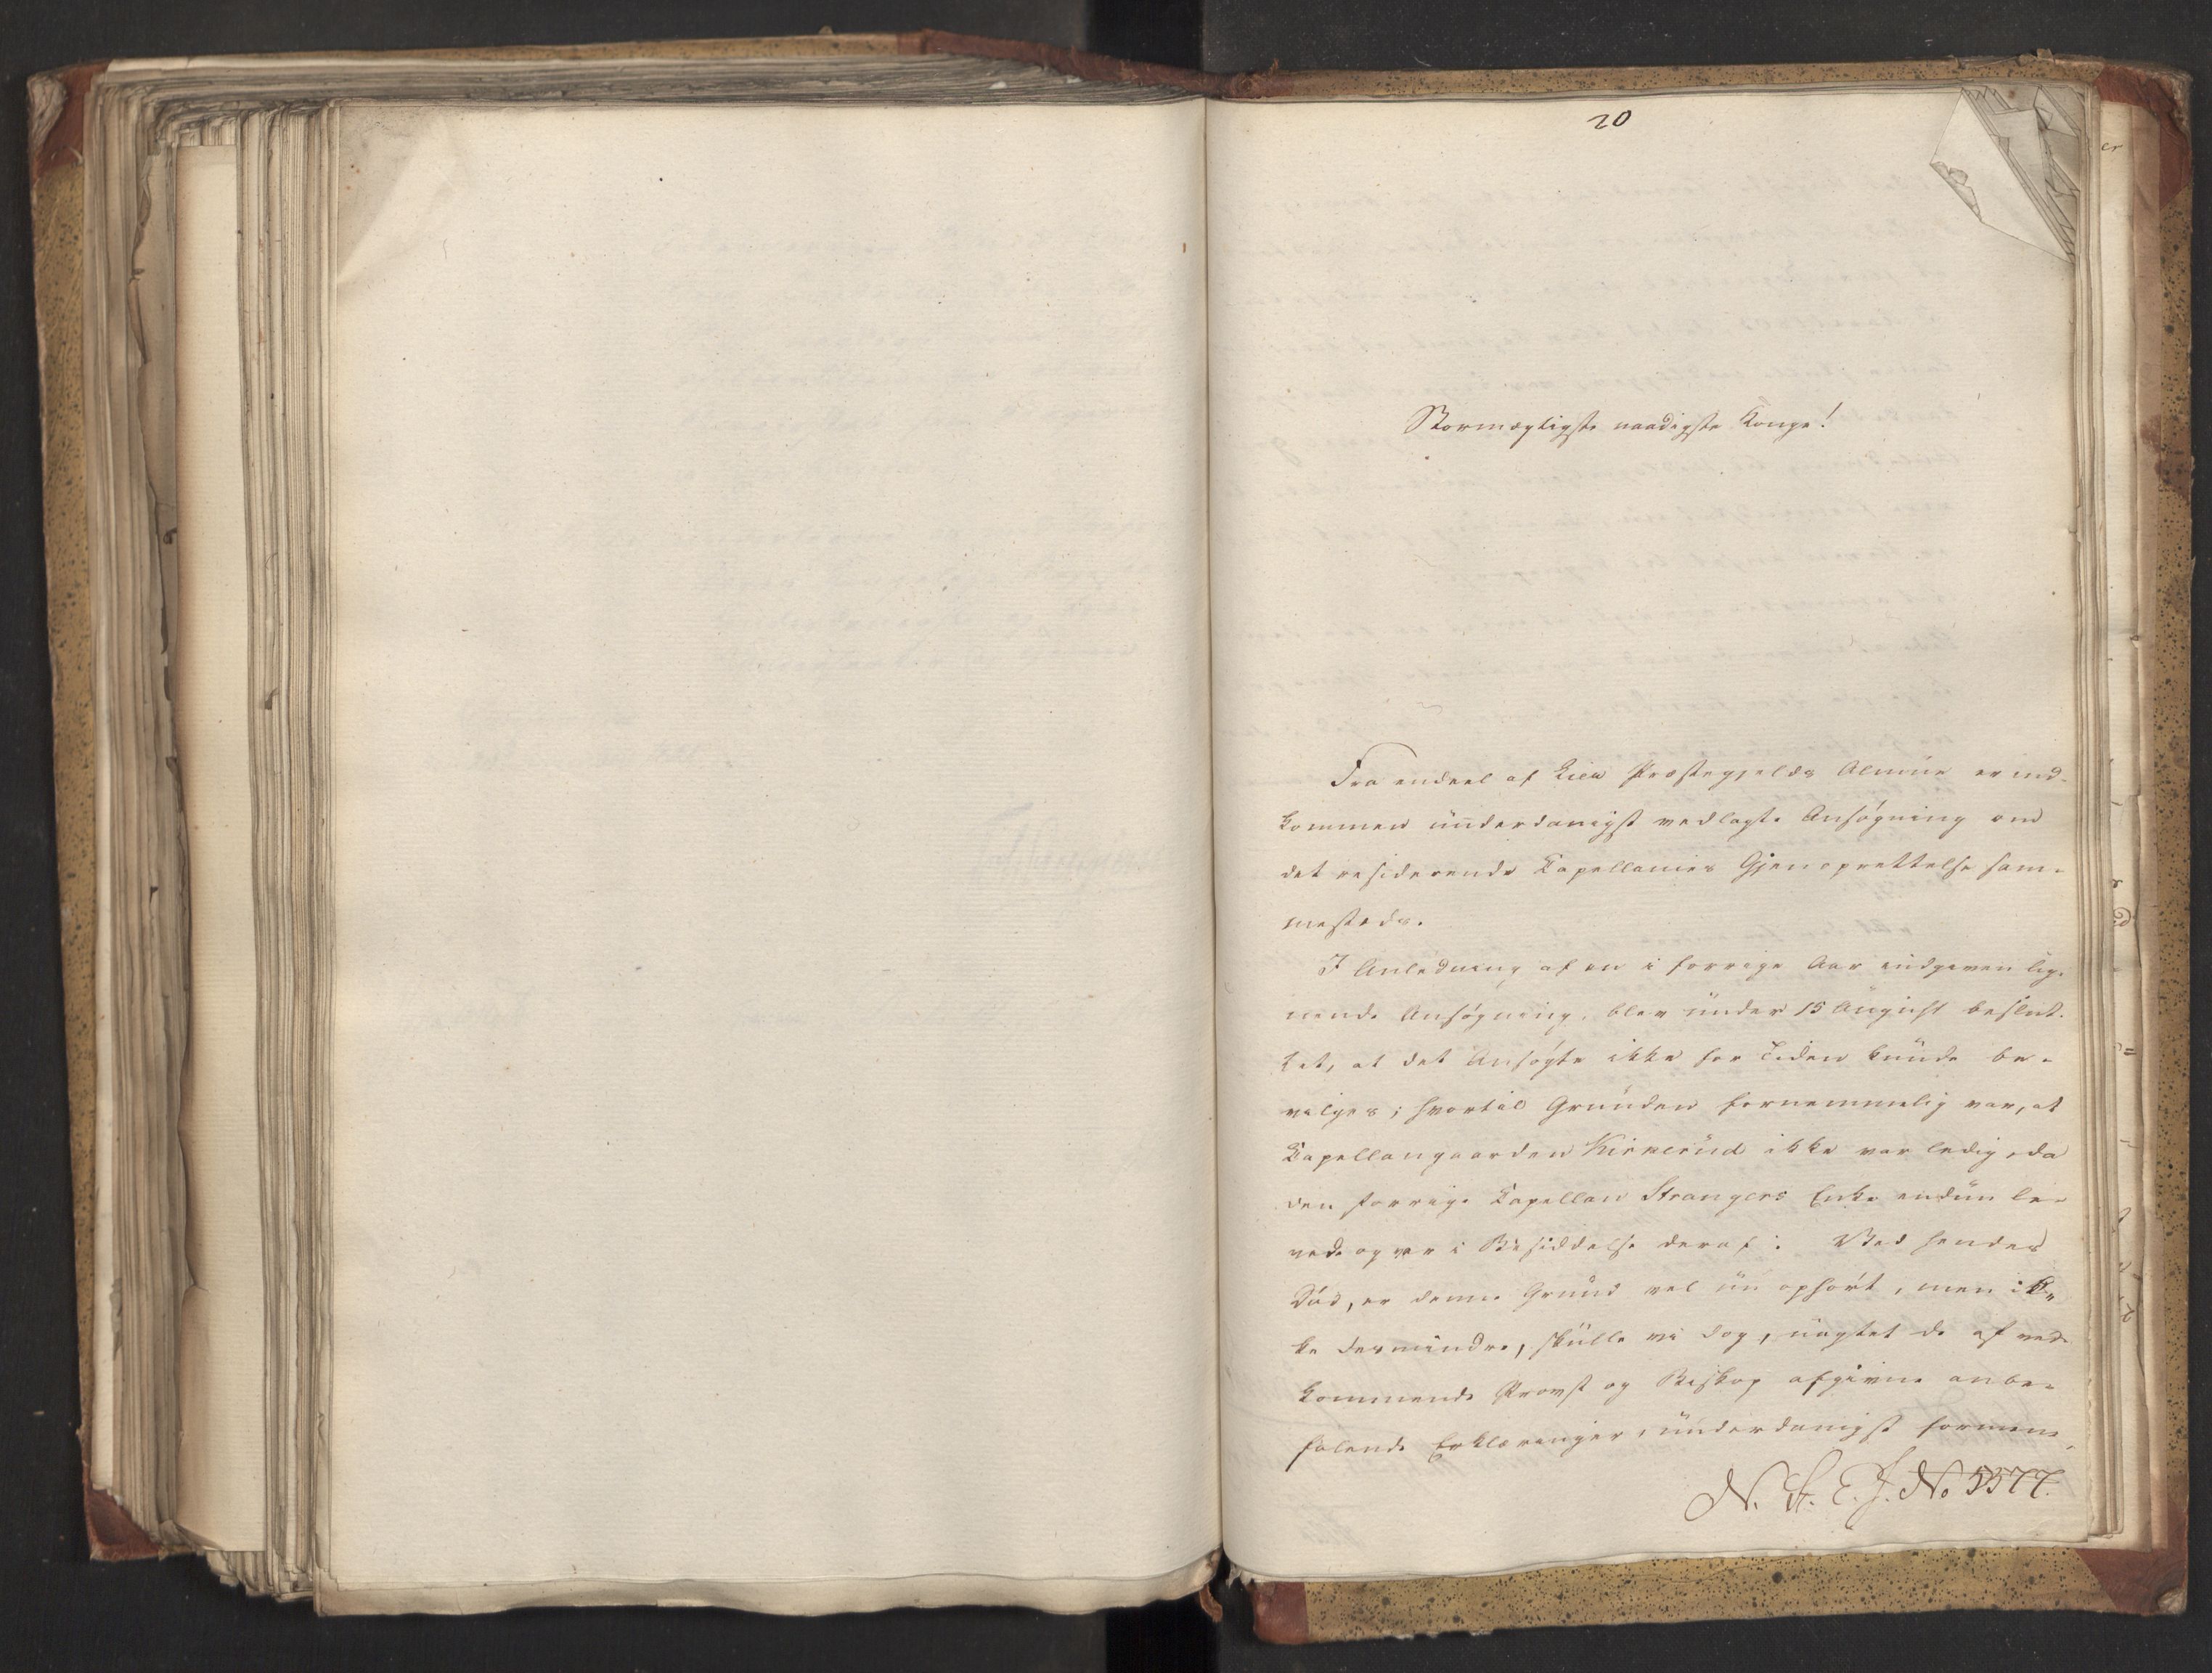 20
Stormægtigste naadigste Konge!
Fra endeel af Liers Præstegjelds Almue er ind-
kommen underdanigst vedlagte Ansøgning om
det residerende Capellanies Gjenoprettelse sam-
mesteds.
I Anledning af en i forrige Aar indgiven lig-
nende Ansøgning, blev under 15 August beslut-
tet, at det Ansøgte ikke for Tiden kunde be-
vilges; hvortil Grunden fornemmelig var, at
Capellangaarden Kirkerud ikke var ledig, da
den forrige Capellan Strangers Enke endnu le-
vede og var i Besiddelse deraf. Ved hendes
Død, er denne Grund vel nu ophørt, men ik-
ke desmindre, skulle vi dog, uagtet de af ved-
kommende Provst og Biskop afgivne anbe-
falende Erklæringer, underdanigst formene,
N. St. E. J. No 5577.